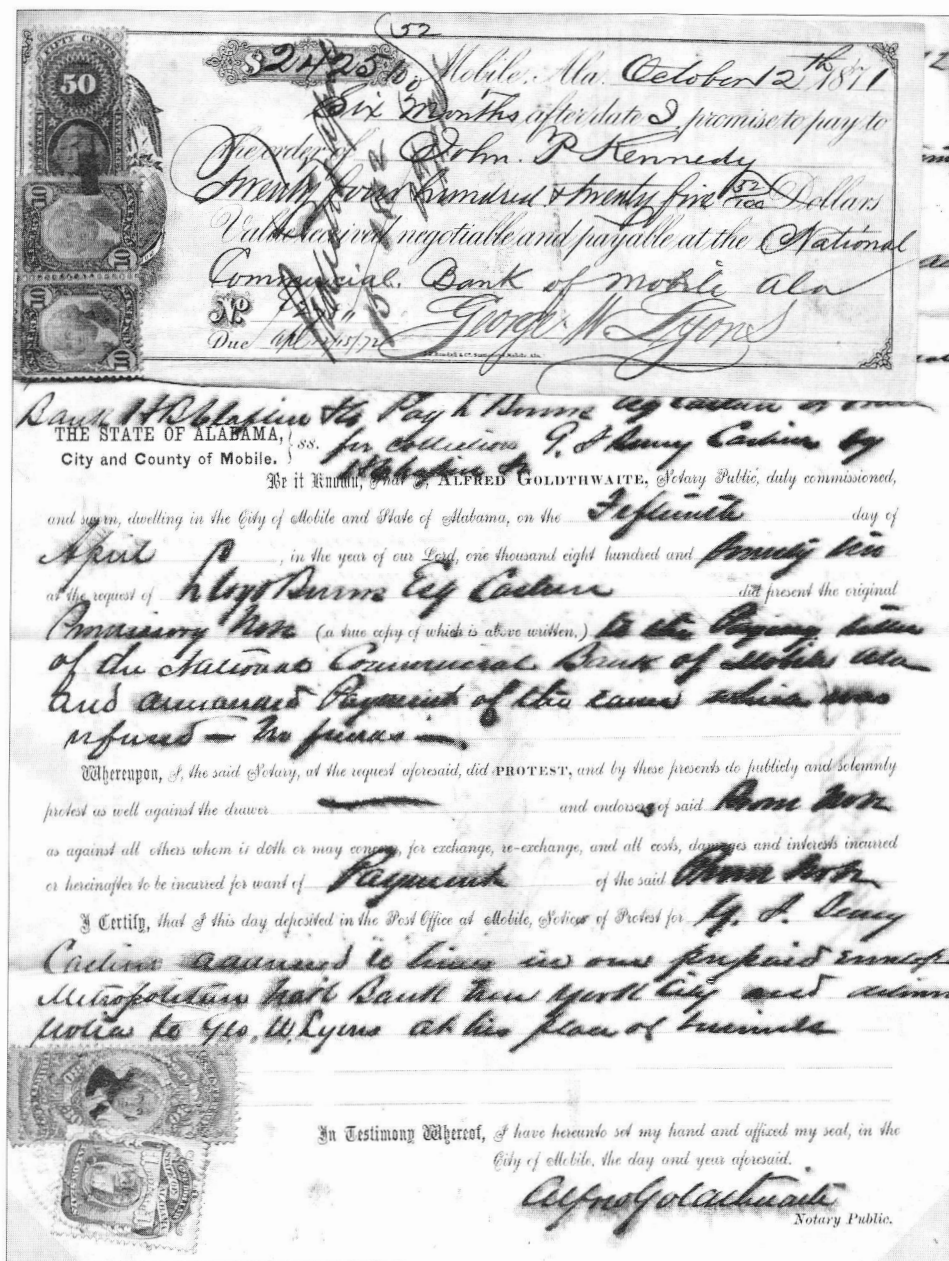 52
$2425 100 Mobile, Ala. October 12th 1871
Six Months after date I promise to pay to
the order of John. P Kennedy
Twenty four hundred & twenty five 52/100 Dollars
Value received negotiable and payable at the National
Commercial. Bank of Mobile Ala
No George. W. Lyons
Due Apl 15/72
FIFTY CENTS
50
10
10
10
10
Bank Pay L Burns Esq Cashier or order
THE STATE OF ALABAMA,
City and County of Mobile.
ss.
for collection G. J Seney Cashier by
Be it Known, That I, ALFRED GOLDTHWAITE, Notary Public, duly commissioned,
and sworn, dwelling in the City of Mobile and State of Alabama, on the Fifteenth day of
April, in the year of our Lord, one thousand eight hundred and
at the request of Burns Esq Cashier did present the original
Promissory Note (a true copy of which is above written,) to the Paying teller
of the National Commercial Bank of Mobile Ala
and demanded Payment of the same which was
refused — No funds —
Whereupon, I, the said Notary, at the request aforesaid, did PROTEST, and by these presents do publicly and solemnly
protest as well against the drawer and endorsers of said Prom Note
as against all others whom is doth or may concern, for exchange, re-exchange, and all costs, damages and interests incurred
or hereinafter to be incurred for want of Payment of the said Prom Note
I Certify, that I this day deposited in the Post Office at Mobile, Notices of Protest for G. J. Seney
Cashier addressed to him in one prepaid envelope
Metropolitan Natl Bank New York City and
notice to Geo. W. Lyons at his place of business
In Testimony Whereof, I have hereunto set my hand and affixed my seal, in the
City of Mobile, the day and year aforesaid.
Alfred Goldthwaite
Notary Public.